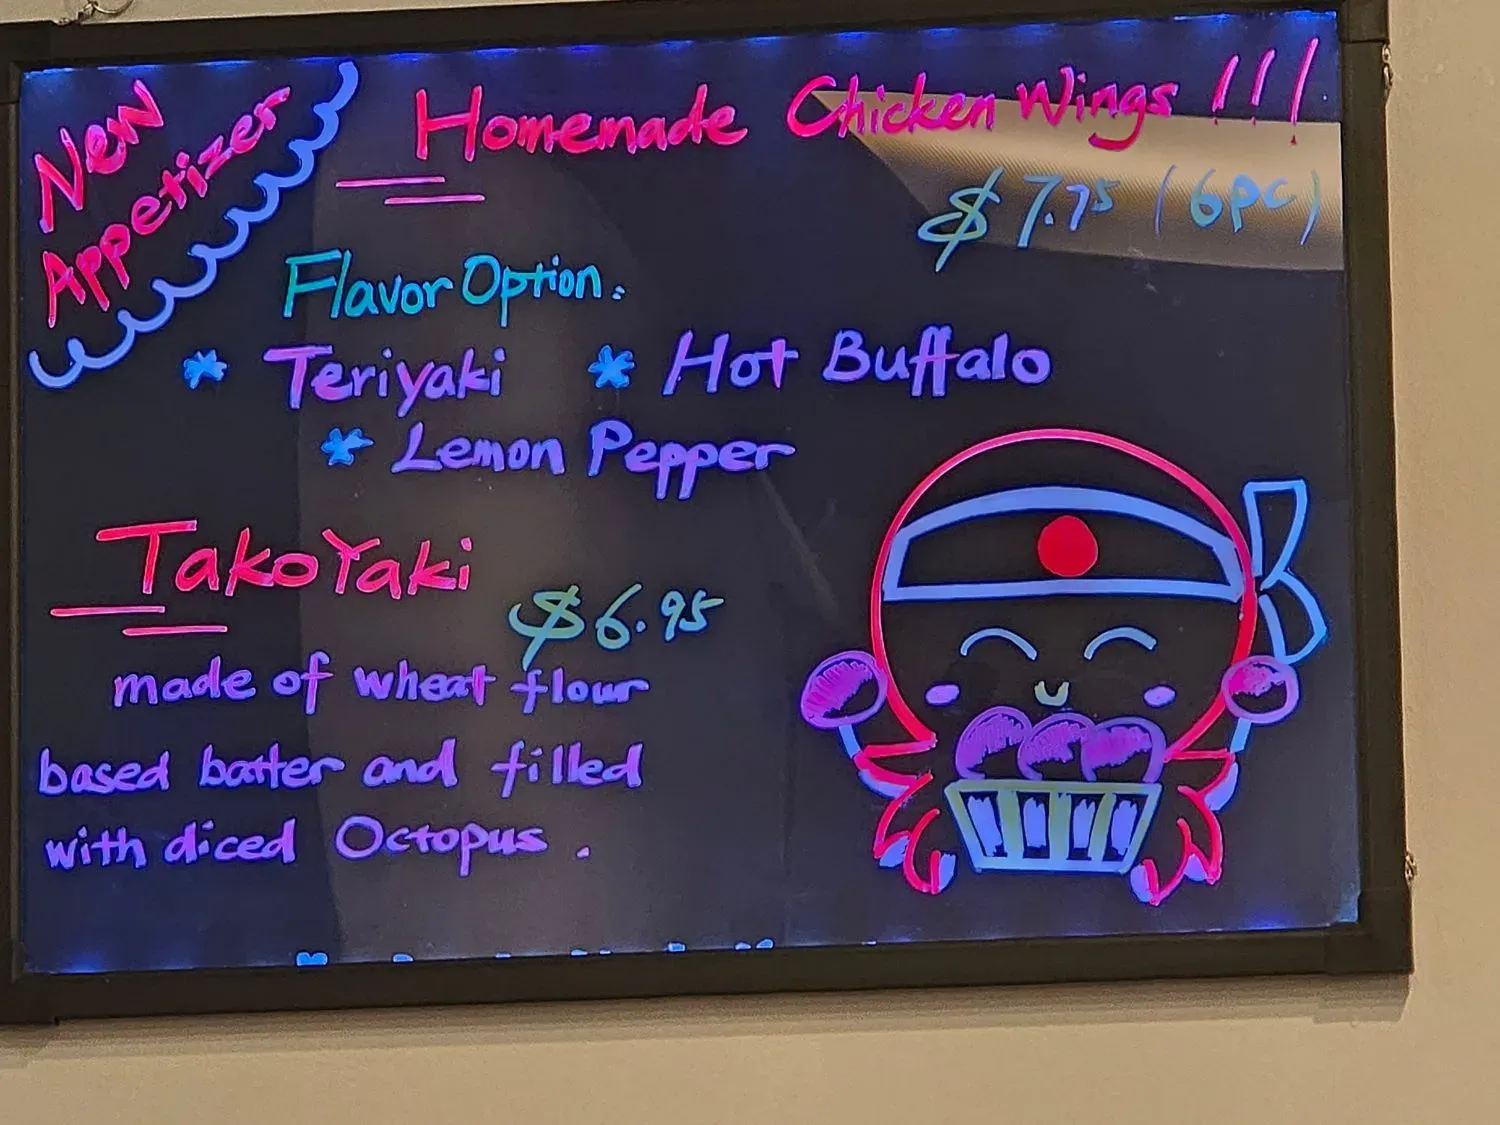 New
Appetizer
Homemade Chicken Wings !!!
$7.75 (6pc)
Flavor Option:
* Teriyaki * Hot Buffalo
* Lemon Pepper
TakoYaki
$6.95
made of wheat flour
based batter and filled
with diced Octopus.